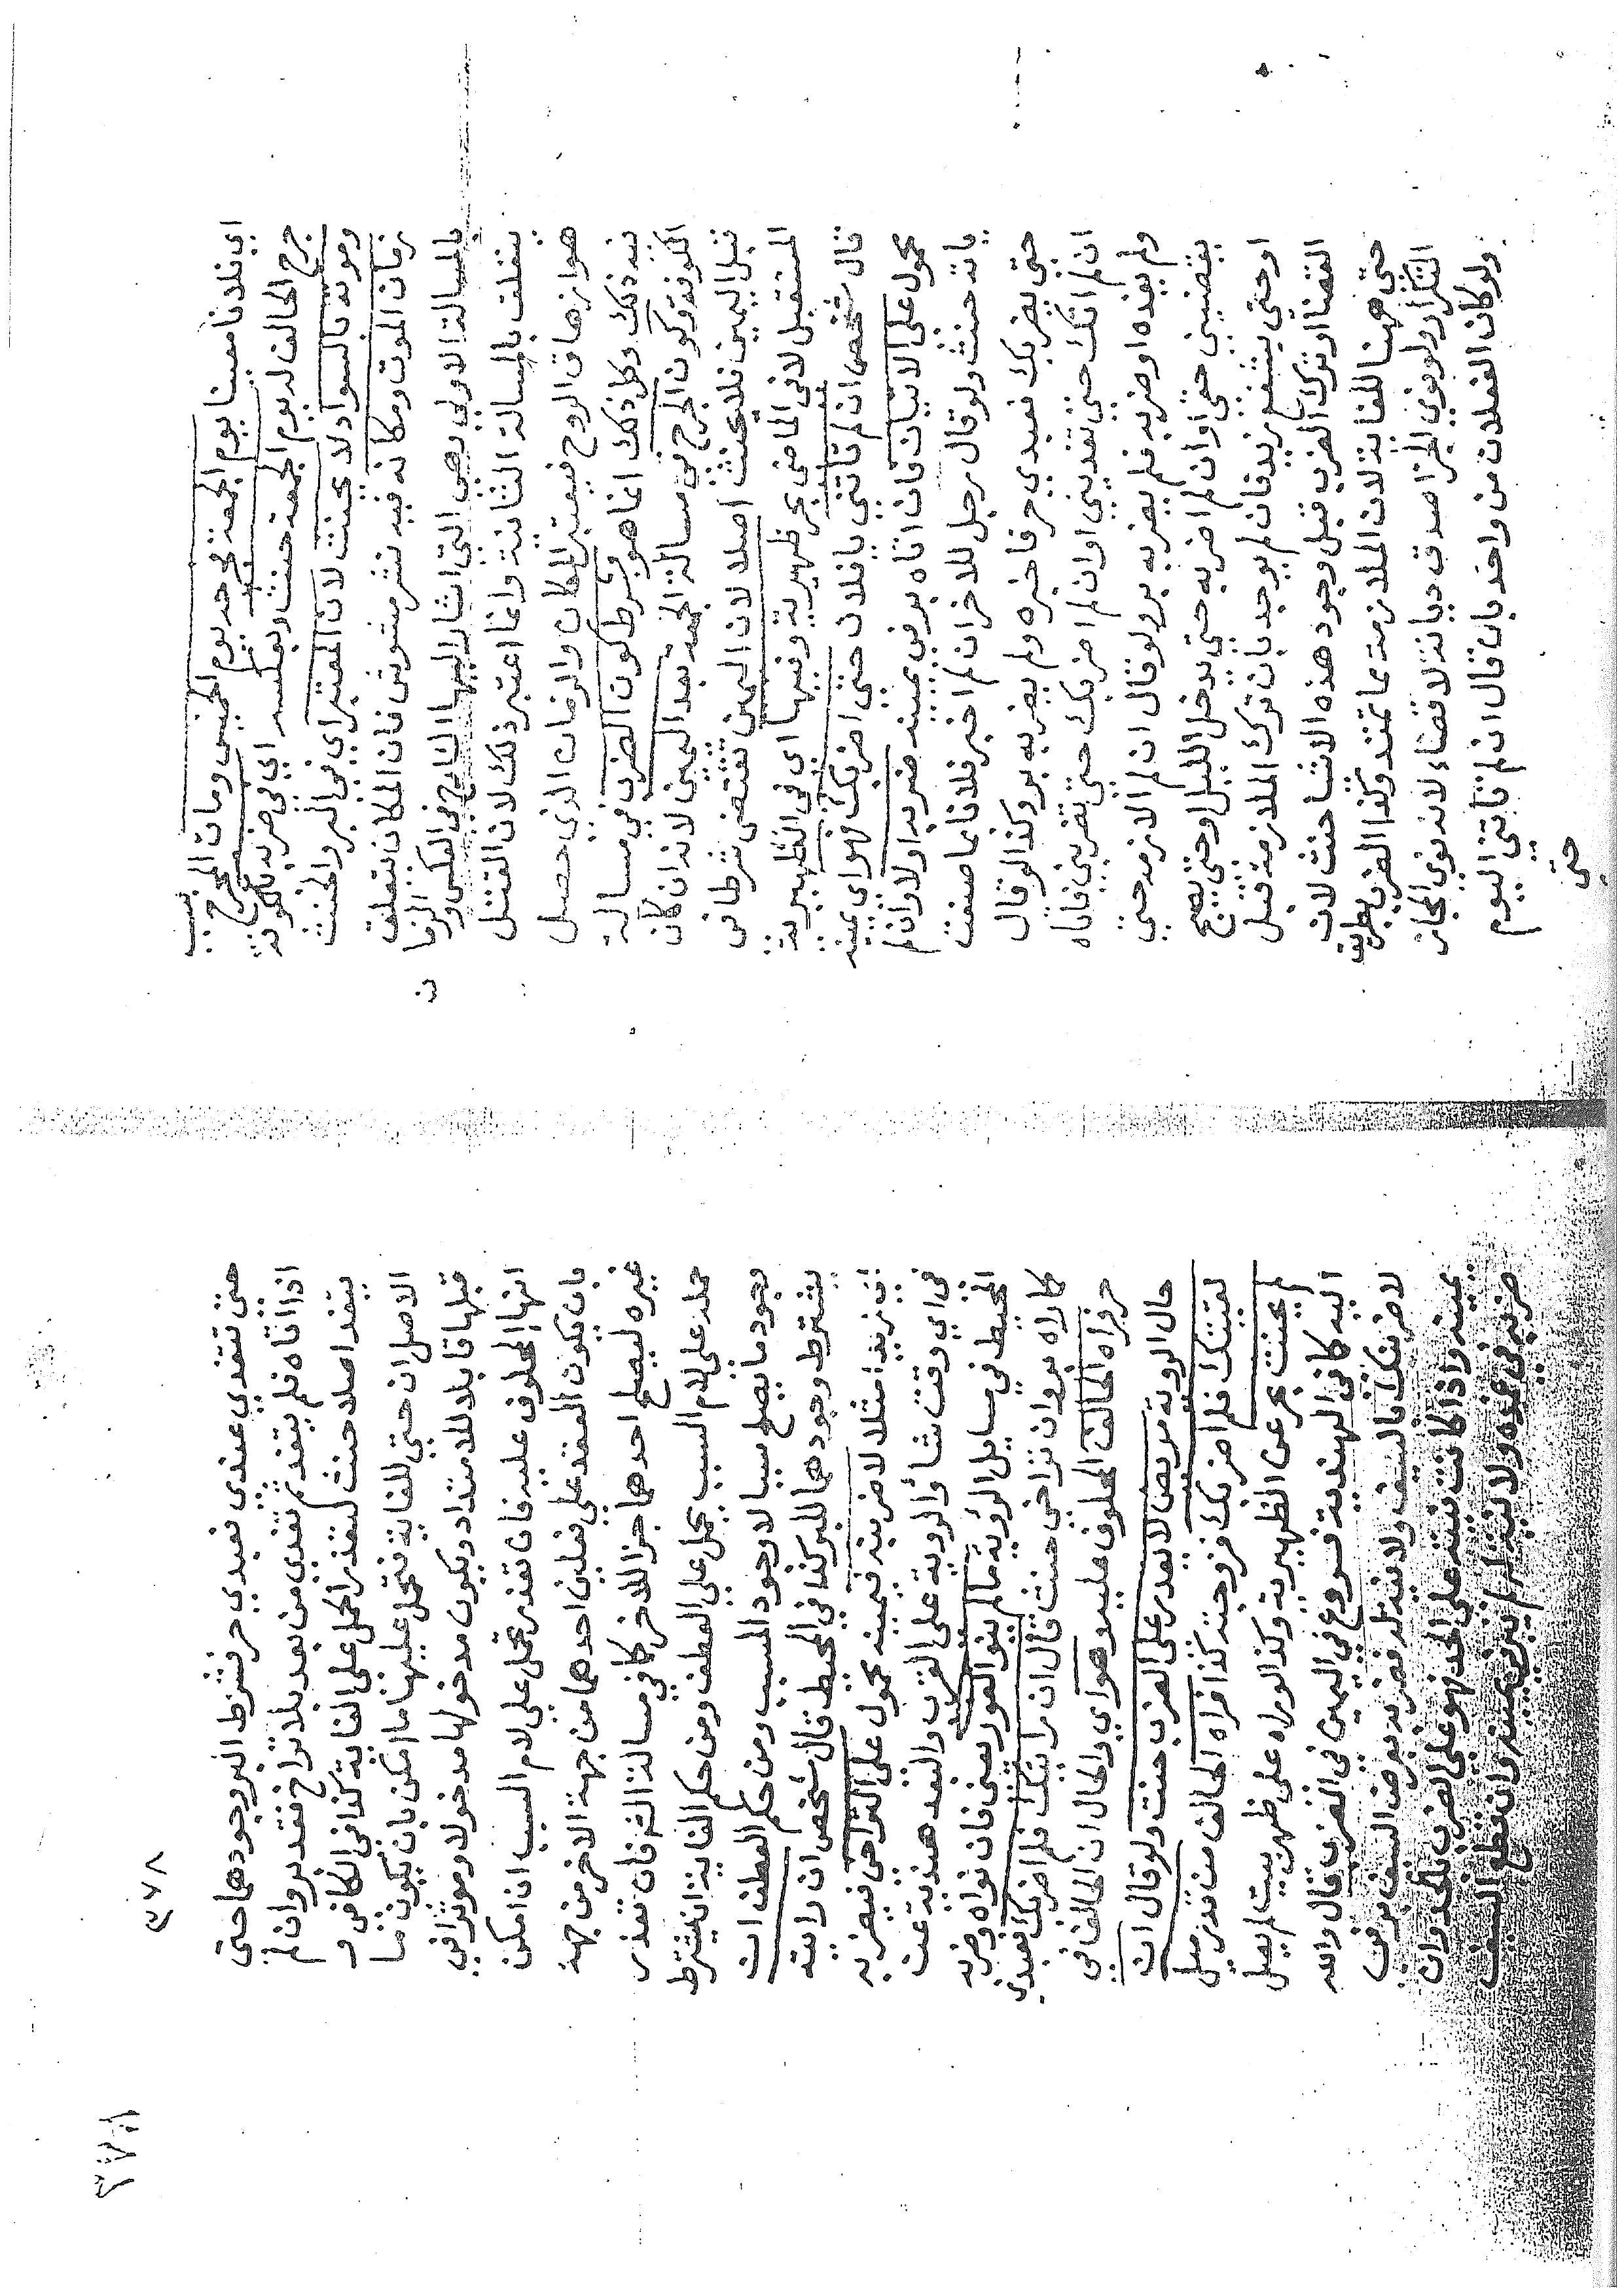 اي فلانا معينا يوم الجمعة فجرحه يوم الخميس ومات المجروح بسبب
جرح الحالف له يوم الجمعة حنث وبعكسه اي في ضربه بالكوفة
وموته بالسواد لا يحنث لان المعتبر اي في البر والحنث
زمان الموت ومكانه فيه نشر مشوش فان المكان يتعلق
بالمسالة الاولي وهي التي اشار اليها الشارح في العكس والزما
ن
يتعلق بالمسالة الثانية وانما اعتبر ذلك لان القتل
هو ازهاق الروح فيعتبر المكان والزمان الذي حصل
فيه ذلك وكل ذلك انما هو بشرط كون الضرب في مسالة
الكوفة وكون الجرح في مسالة الجمعة بعد اليمين لانه ان كان
قبل اليمين فلا يحنث اصلا لان اليمين تقتضي شرطا في
المستقبل لا في الماضي بحر ظهيرية وفيها اي في الظهيرية
قال شخص ان لم تاتني يا فلان حتي اضربك فهو اي يمينه
محمول على الاتيان فان اتاه بر في يمينه ضربه اولا وان لم
ياته حنث ولو قال رجل للاخر ان لم اخبر فلانا بما صنعت
حتي يضربك فعبدي حر فاخبره ولم يضربه بر وكذا لو قال
ان لم اتك حتي تغديني او ان لم اضربك حتي تضربني فاتاه
ولم يغده او ضربه فلم يضربه بر ولو قال ان لم الازمه حتي
يقضيني حقي او ان لم اضربه حتي يدخل الليل او حتي يصبح
او حتي يشفع زيد فان لم يوجد بان ترك الملازمة قبل
القضا او ترك الضرب قبل وجود هذه الاشيا حنث لان
حتي ههنا للغاية لان الملازمة مما تمتد وكذا الضرب بطريق
التكرار ولو نوي الجزا صدق ديانة لا قضاء لانه نوي المجاز
ولو كان الفعلان من واحد بان قال ان لم تاتني اليوم
حتي
٣٧٨
حتي تتغدي عندي فعبدي حر فشرط البر وجودهما حتي
اذا اتاه فلم يتغد ثم تغدي من بعد بلا تراخ فقد بر وان لم
يتغد اصلا حنث لتعذر الحمل علي الغاية كذا في الكافي و
الاصل ان حتي للغاية فتحمل عليها ما امكن بان يكون ما
قبلها قابلا للامتداد ويكون مدخولها مدخولا وموثرا في
انها المحلوف عليه فان تعذر تحمل علي لام السبب ان امكن
بان يكون العقد علي فعلين احدهما من جهة الاخر من جهة
غيره ليصلح احدهما جزا للاخر كما في مسالة الشر فان تعذر
حمله على لام السبب يحمل على العطف ومن حكم الغاية ان يشترط
وجود ما يصلح سببا لا وجود المسبب ومن حكم العطف ان
يشترط وجودهما للبر كذا في المحيط قال شخص ان رايته
اي زيدا مثلا لاضربنه فيمينه محمول على التراخي فيضربه
في اي وقت شاء والروية على القرب والبعد هندية عن
المحيط في مسايل الرؤية ما لم ينو الفور يعني فان نواه وضربه
كما راه بر وان تراخي حنث قال ان رايتك فلم اضربك فعبدي
حر فراه الحالف المحلوف عليه وهو اي والحال ان الحالف في
حال الروية مريض لا يقدر على الضرب حنث ولو قال ان
لقيتك فلم اضربك فزوجته كذا فراه الحالف من قدر ميل
لم يحنث بحر عن الظهيرية وكذا لو راه علي ظهر بيت لم يصل
اليه كما في الهندية فروع في اليمين في الضرب قال والله
لاضربنك بالسيف ولا نية له فضربه بعرض السيف بر في
يمينه واذا كانت نيته علي الحد فهو علي الضرب بالحد وان
ضربه في غمده ولا نية له لم يبر في يمينه وان قطع السيف